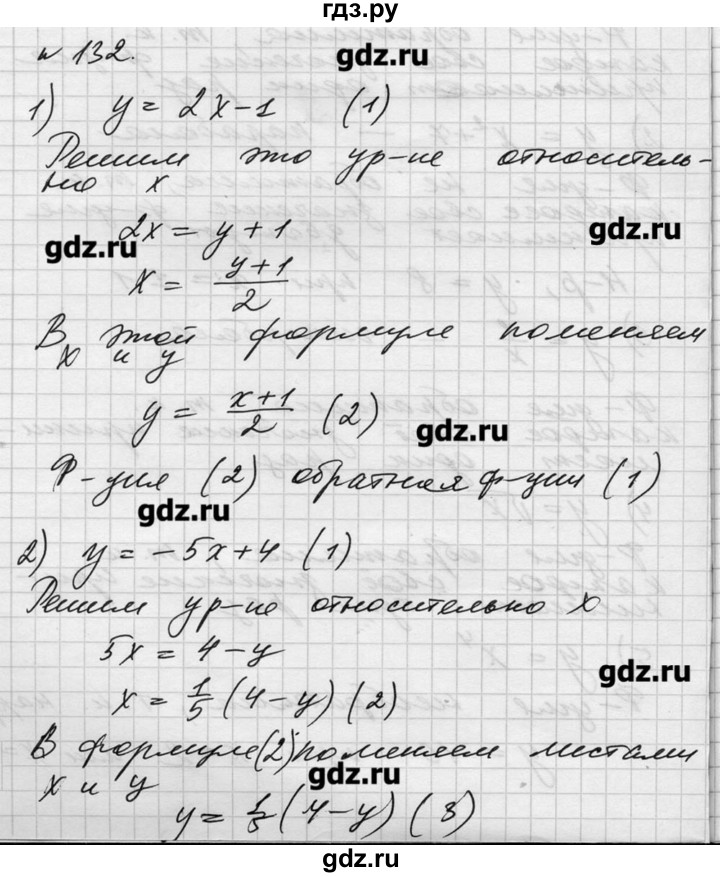 гдз.ру
gdz.ru
№ 132.
1) y = 2x-1 (1)
Решим это ур-ие относитель-
но x
2x = y + 1
gdz.ru
gdz.ru
x = (y+1)/2
В этой формуле поменяем
x и y
y = (x+1)/2 (2)
gdz.ru
Ф-ция (2) обратная ф-ции (1)
gdz.ru
2) y = -5x+4 (1)
Решим ур-ие относительно x
5x = 4-y
gdz.ru
x = 1/5 (4-y) (2)
В формуле (2) поменяем местами
x и y
gdz.ru
y = 1/5 (4-y) (3)
gdz.ru